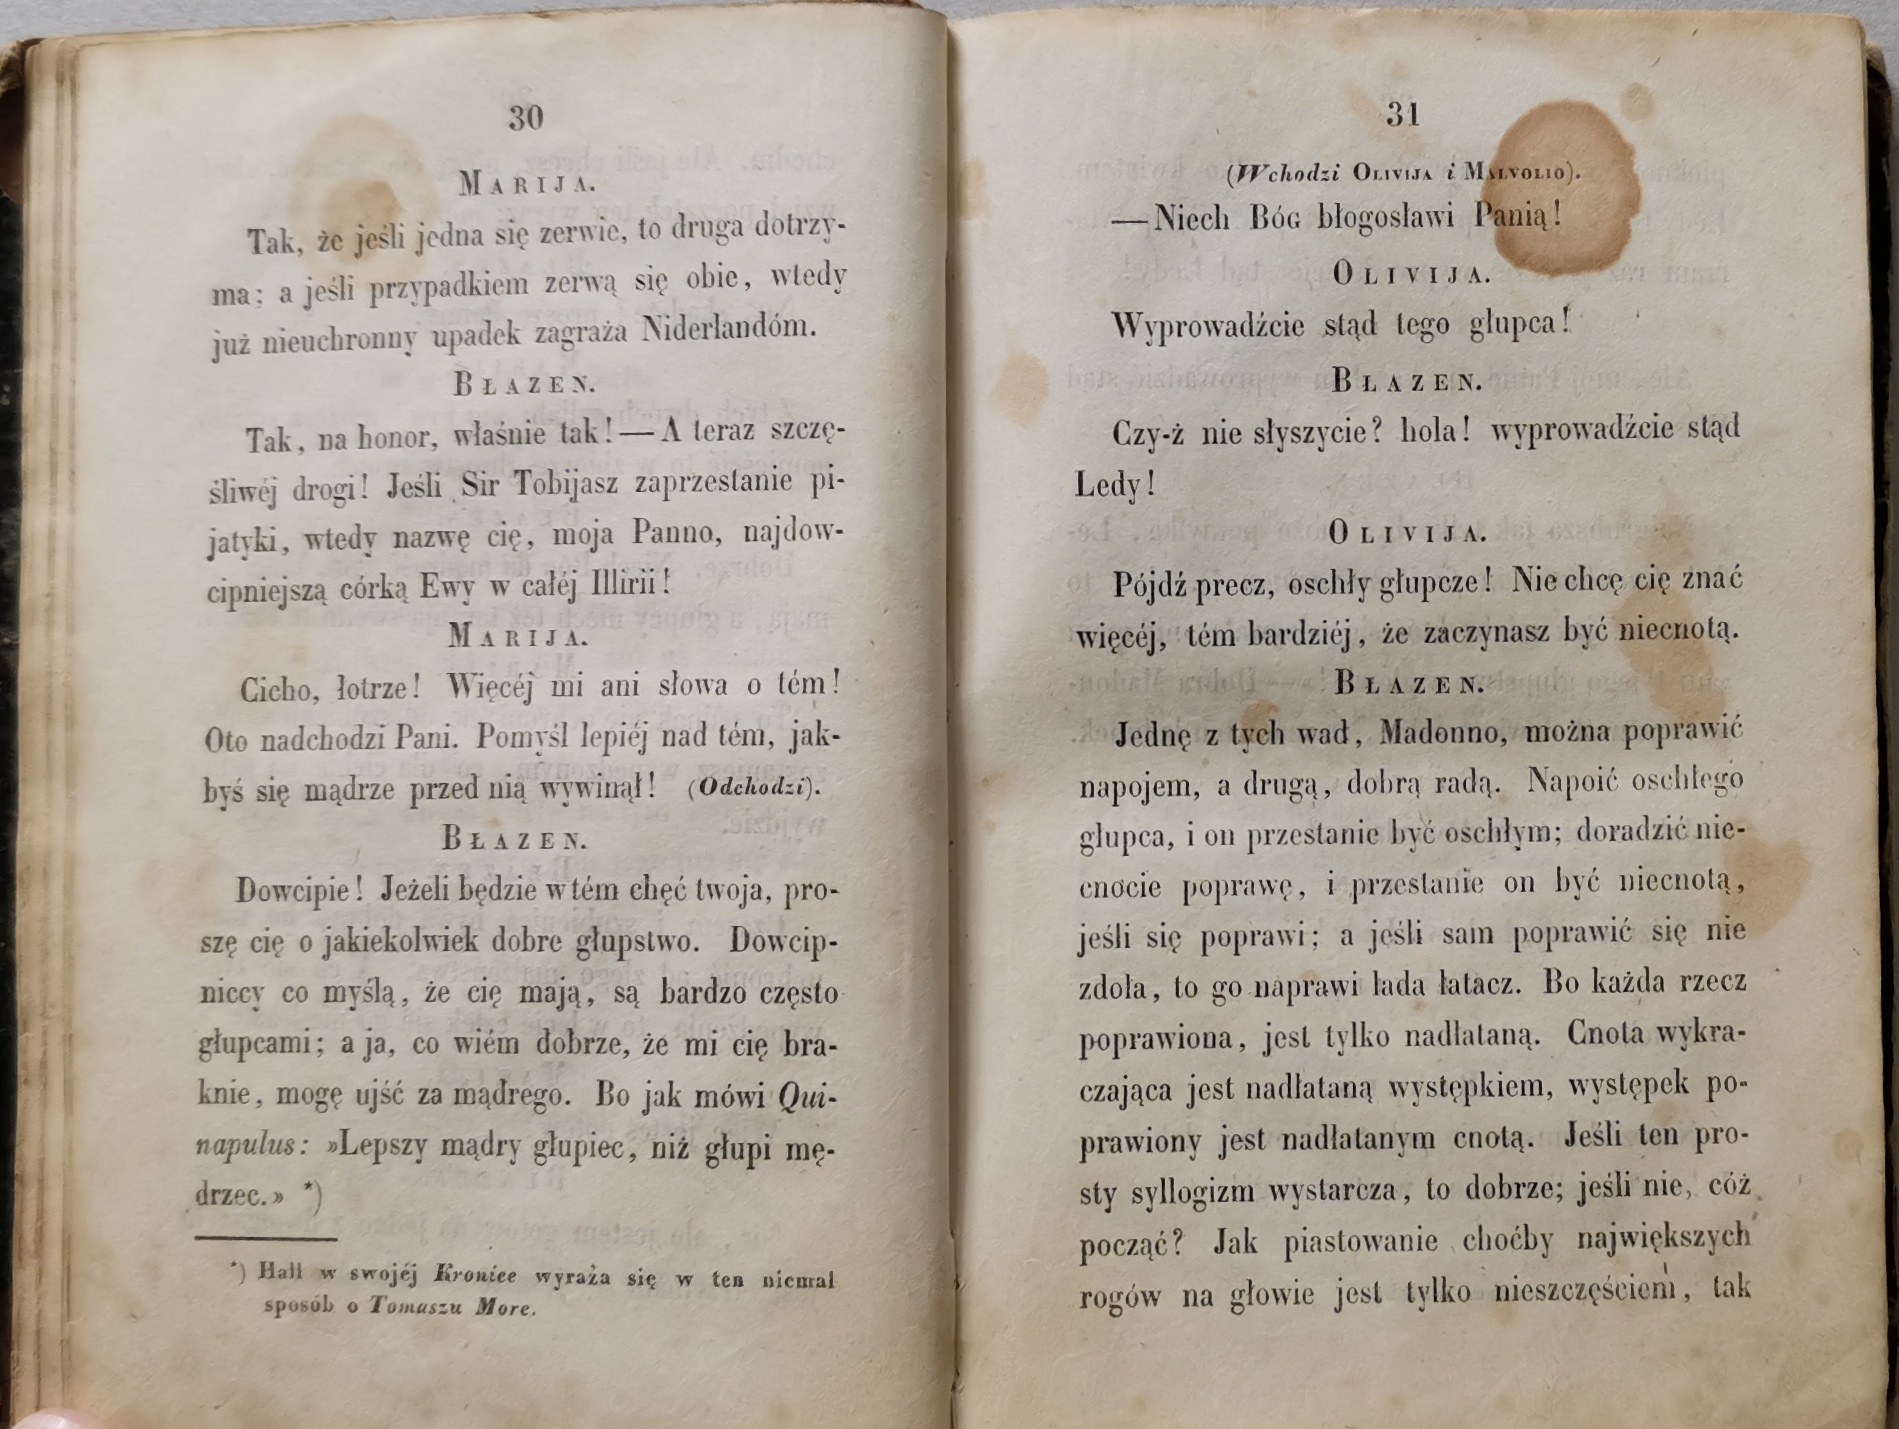 30
MARIJA.
Tak, że jeśli jedna się zerwie, to druga dotrzy-
ma; a jeśli przypadkiem zerwą się obie, wtedy
już nieuchronny upadek zagraża Niderlandóm.
BŁAZEN.
Tak, na honor, właśnie tak! — A teraz szczę-
śliwéj drogi! Jeśli Sir Tobijasz zaprzestanie pi-
jatyki, wtedy nazwę cię, moja Panno, najdow-
cipniejszą córką Ewy w całéj Illirii!
MARIJA.
Cicho, łotrze! Więcéj mi ani słowa o tém!
Oto nadchodzi Pani. Pomyśl lepiéj nad tém, jak-
byś się mądrze przed nią wywinął! (Odchodzi).
BŁAZEN.
Dowcipie! Jeżeli będzie w tém chęć twoja, pro-
szę cię o jakiekolwiek dobre głupstwo. Dowcip-
niccy co myślą, że cię mają, są bardzo często
głupcami; a ja, co wiém dobrze, że mi cię bra-
knie, mogę ujść za mądrego. Bo jak mówi Qui-
napulus: »Lepszy mądry głupiec, niż głupi mę-
drzec.» *)
*) Hall w swojéj Kronice wyraża się w ten niemal
sposób o Tomaszu More.
31
(Wchodzi OLIVIJA i MALVOLIO).
— Niech BÓG błogosławi Panią!
OLIVIJA.
Wyprowadźcie stąd tego głupca!
BŁAZEN.
Czy-ż nie słyszycie? hola! wyprowadźcie stąd
Ledy!
OLIVIJA.
Pójdź precz, oschły głupcze! Nie chcę cię znać
więcéj, tém bardziéj, że zaczynasz być niecnotą.
BŁAZEN.
Jednę z tych wad, Madonno, można poprawić
napojem, a drugą, dobrą radą. Napoić oschłego
głupca, i on przestanie być oschłym; doradzić nie-
cnocie poprawę, i przestanie on być niecnotą,
jeśli się poprawi; a jeśli sam poprawić się nie
zdoła, to go naprawi łada łatacz. Bo każda rzecz
poprawiona, jest tylko nadłataną. Cnota wykra-
czająca jest nadłataną występkiem, występek po-
prawiony jest nadłatanym cnotą. Jeśli ten pro-
sty syllogizm wystarcza, to dobrze; jeśli nie, cóż
począć? Jak piastowanie choćby największych
rogów na głowie jest tylko nieszczęściem, tak